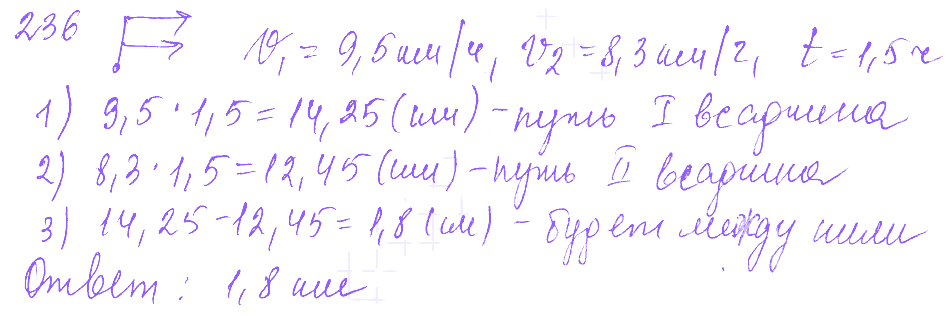 236 v₁ = 9,5 км/ч, v₂ = 8,3 км/ч, t = 1,5 ч
1) 9,5 · 1,5 = 14,25 (км) – путь I всадника
2) 8,3 · 1,5 = 12,45 (км) – путь II всадника
3) 14,25 – 12,45 = 1,8 (км) – будет между ними
Ответ: 1,8 км